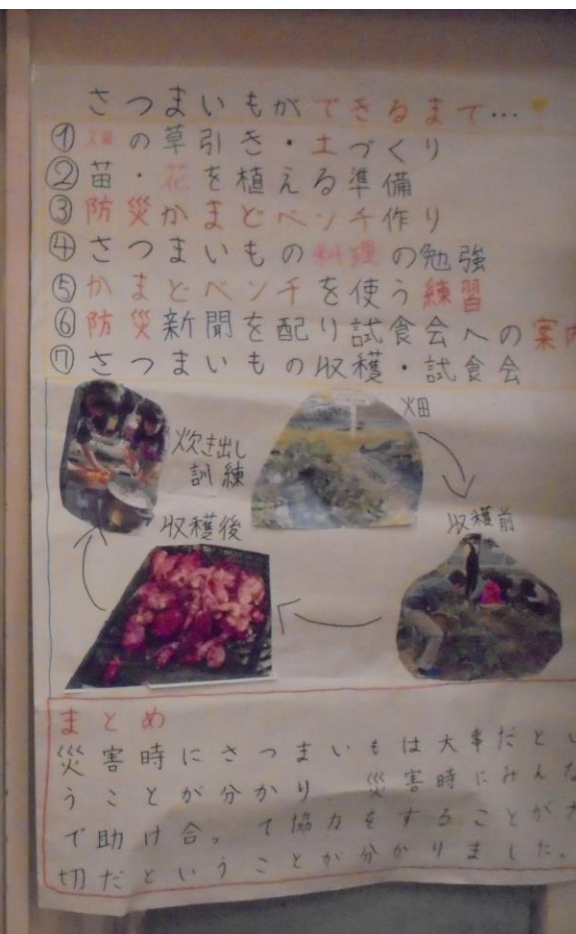 さつまいもができるまで…
① 畑の草引き・土づくり
② 苗・花を植える準備
③ 防災かまどベンチ作り
④ さつまいもの料理の勉強
⑤ かまどベンチを使う練習
⑥ 防災新聞を配り試食会への案内
⑦ さつまいもの収穫・試食会
畑
炊き出し
訓練
収穫後
収穫前
まとめ
災害時にさつまいもは大事だとい
うことが分かり 災害時にみんな
で助け合って協力をすることが大
切だということが分かりました。